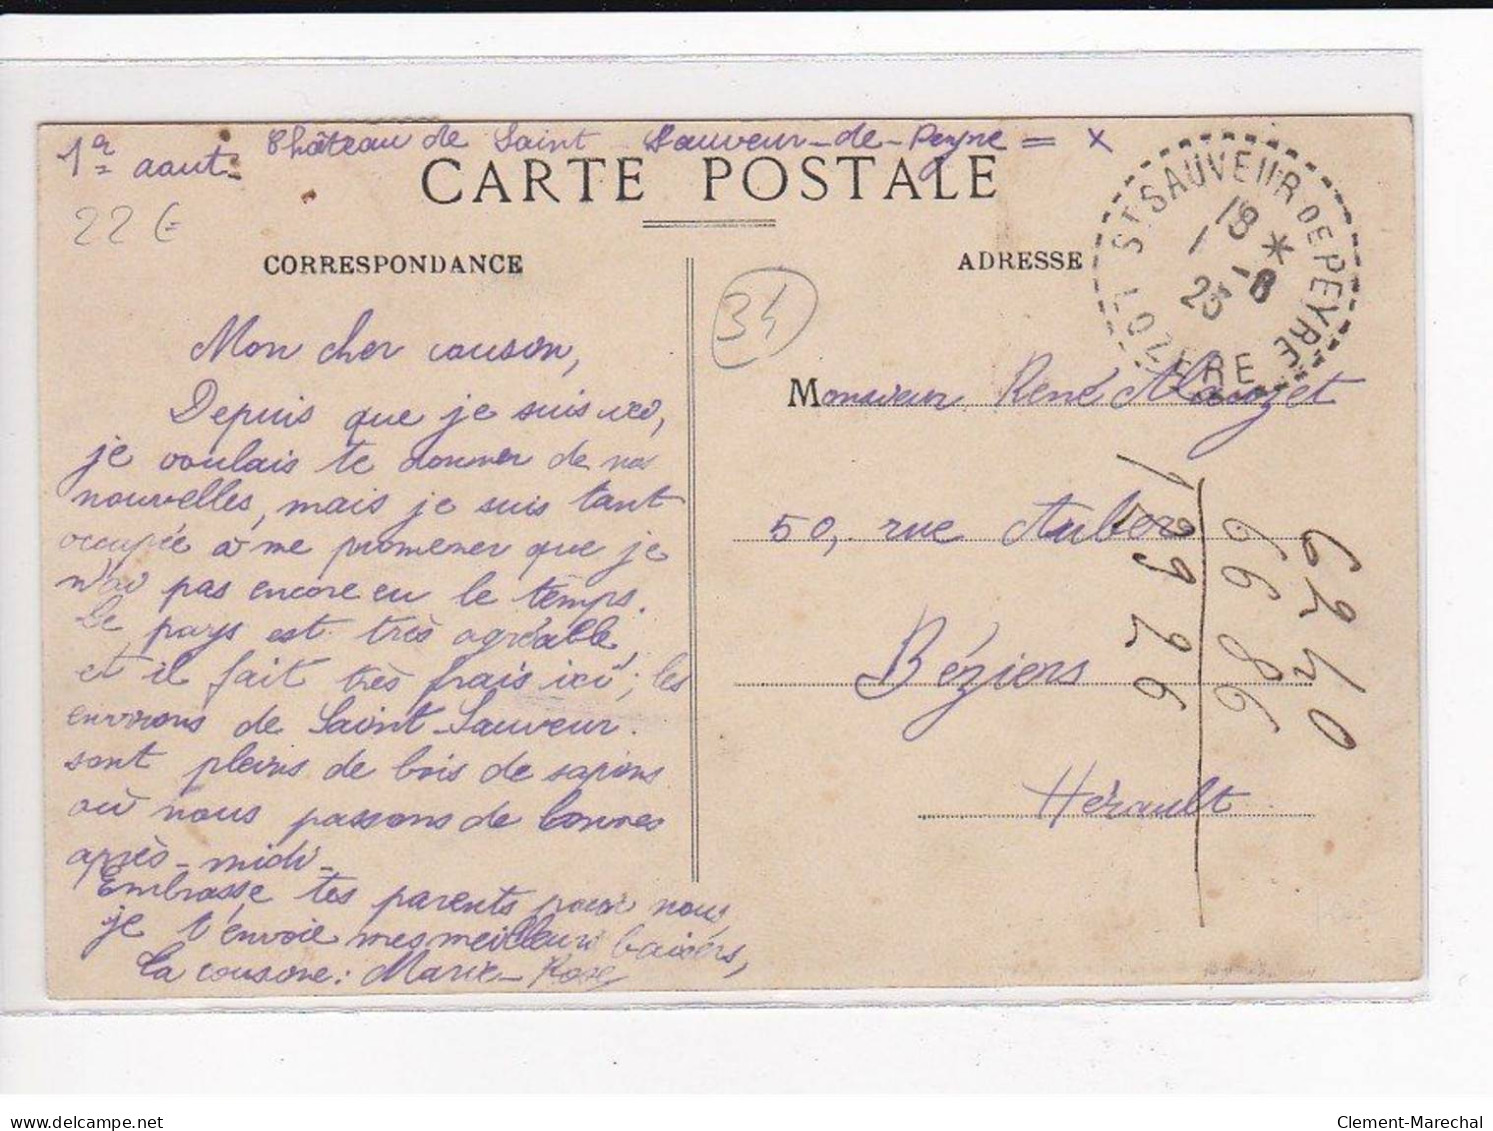 1er aout. Château de Saint-Sauveur-de-Peyre = x
CARTE POSTALE
22 €
CORRESPONDANCE
ADRESSE
34
ST SAUVEUR DE PEYRE
LOZERE
18 *
1 - 8
23
Mon cher cousin,
Depuis que je suis ici,
je voulais te donner de nos
nouvelles, mais je suis tant
occupée à me promener que je
n'ai pas encore eu le temps.
Le pays est très agréable
et il fait très frais ici; les
environs de Saint-Sauveur.
sont pleins de bois de sapins
où nous passons de bonnes
après-midi-
Embrasse tes parents pour nous
je t'envoie mes meilleurs baisers,
ta cousine: Marie-Rose
Monsieur René
50, rue Auber
Béziers
Hérault
6240
6686
12926
Clement-Marechal